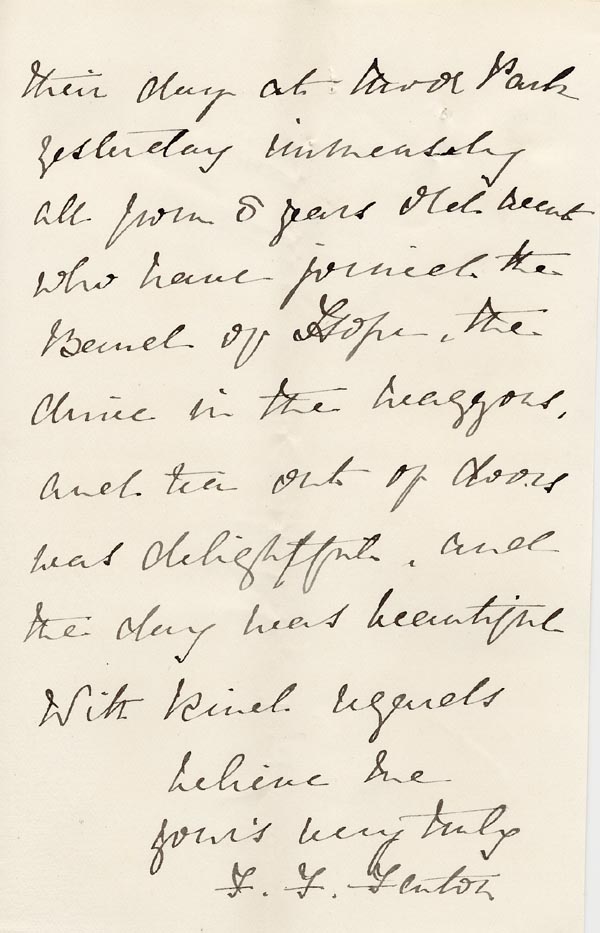 their day at Park
yesterday immensely
all from 8 years old went
who have joined the
Band of Hope, the
drive in the waggons,
and tea out of doors
was delightful, and
the day was beautiful
With kind regards
believe me
yours very truly
F. F. Fenton